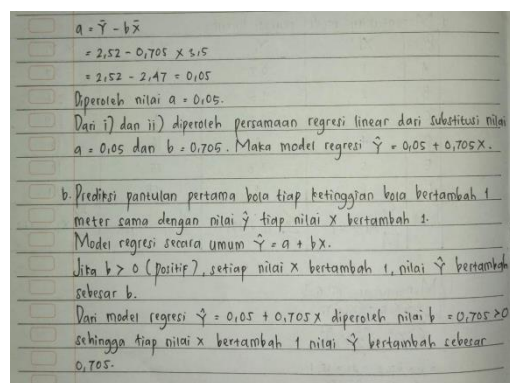 a = Ȳ - bX̄
= 2,52 - 0,705 × 3,5
= 2,52 - 2,47 = 0,05
Diperoleh nilai a = 0,05.
Dari i) dan ii) diperoleh persamaan regresi linear dari substitusi nilai
a = 0,05 dan b = 0,705. Maka model regresi Ŷ = 0,05 + 0,705X.
b. Prediksi pantulan pertama bola tiap ketinggian bola bertambah 1
meter sama dengan nilai ŷ tiap nilai X bertambah 1.
Model regresi secara umum Ŷ = a + bx.
Jika b > 0 (positif), setiap nilai X bertambah 1, nilai Ŷ bertambah
sebesar b.
Dari model regresi Ŷ = 0,05 + 0,705X diperoleh nilai b = 0,705 > 0
sehingga tiap nilai x bertambah 1 nilai Ŷ bertambah sebesar
0,705.